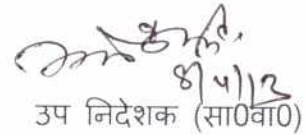 8/4/12
उप निदेशक (सा0वा0)